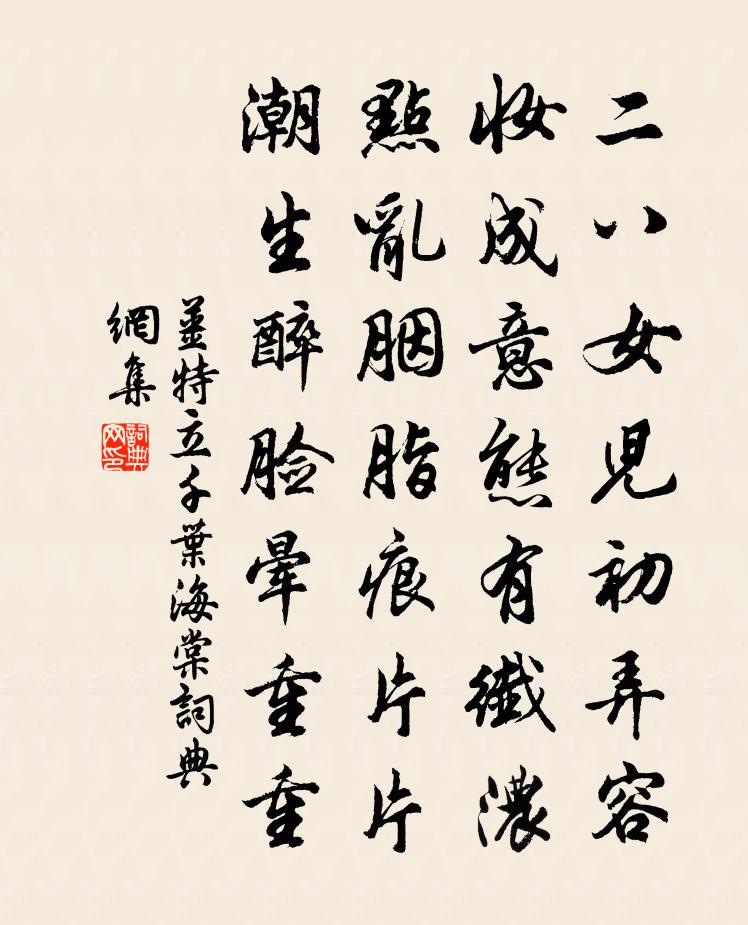 二八女兒初弄容
妝成意態有纖濃
點亂胭脂痕片片
潮生醉臉暈重重
薑特立千葉海棠詞典
網集
詞典
网印